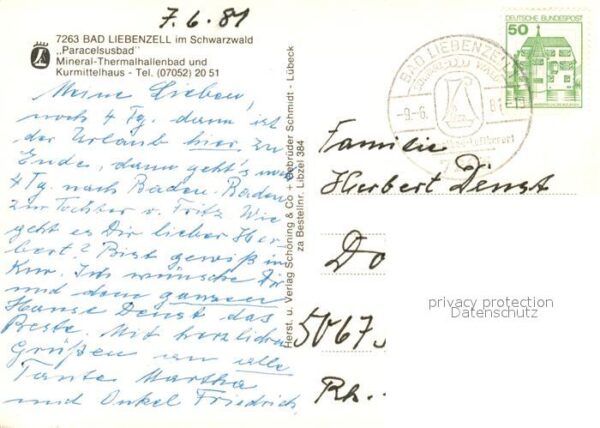 7.6.81
7263 BAD LIEBENZELL im Schwarzwald
„Paracelsusbad"
Mineral-Thermalhallenbad und
Kurmittelhaus - Tel. (07052) 20 51
Meine Lieben,
noch 4 Tg. dann ist
der Urlaub hier zu
Ende, dann geht's noch
4 Tg. nach Baden-Baden
zur Tochter v. Fritz. Wie
geht es Dir lieber Her-
bert? Bist gewiß in
Kur. Ich wünsche Dir
und dem ganzen
Hause Denst das
Beste. Mit herzlichen
Grüßen an alle
Tante Martha
und Onkel Friedrich.
Herst. u. Verlag Schöning & Co + Gebrüder Schmidt - Lübeck
za Bestellnr. Libzel 384
BAD LIEBENZELL
-9.-6. 81
DEUTSCHE BUNDESPOST
50
Familie
Herbert Denst
Do
5067
Rh..
privacy protection
Datenschutz